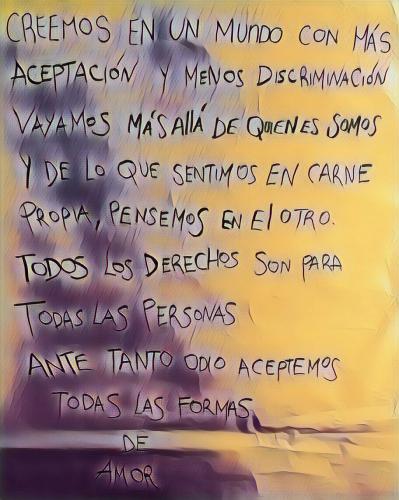 CREEMOS EN UN MUNDO CON MÁS
ACEPTACIÓN Y MENOS DISCRIMINACIÓN
VAYAMOS MÁS ALLÁ DE QUIENES SOMOS
Y DE LO QUE SENTIMOS EN CARNE
PROPIA, PENSEMOS EN El OTRO.
TODOS LOS DERECHOS SON PARA
TODAS LAS PERSONAS
ANTE TANTO ODIO ACEPTEMOS
TODAS LAS FORMAS
DE
AMOR